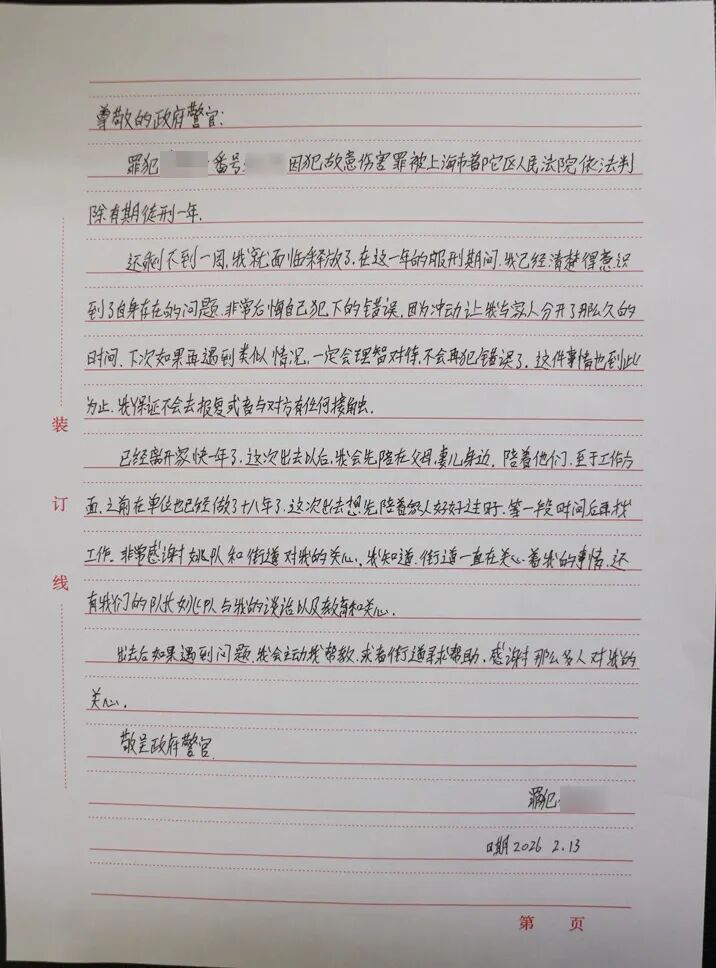 尊敬的政府警官：
罪犯 番号 因犯故意伤害罪被上海市普陀区人民法院依法判
除有期徒刑一年.
还剩不到一周,我就面临释放了.在这一年的服刑期间.我已经清楚得意识
到了自身存在的问题.非常后悔自己犯下的错误,因为冲动让我与家人分开了那么久的
时间.下次如果再遇到类似情况,一定会理智对待,不会再犯错误了.这件事情也到此
为止.我保证不会去报复或者与对方有任何接触.
已经离开家快一年了.这次出去以后,我会先陪在父母,妻儿身边.陪着他们.至于工作方
面,之前在单位也已经做了十八年了.这次出去想先陪着家人好好过日子.等一段时间后再找
工作.非常感谢姚队和街道对我的关心.我知道.街道一直在关心着我的事情.还
有我们的队长姚队与我的谈话以及教育和关心.
出去后如果遇到问题.我会主动找帮教.或者街道寻求帮助.感谢那么多人对我的
关心.
敬呈政府警官
罪犯
日期2026 2.13
装
订
线
第 页